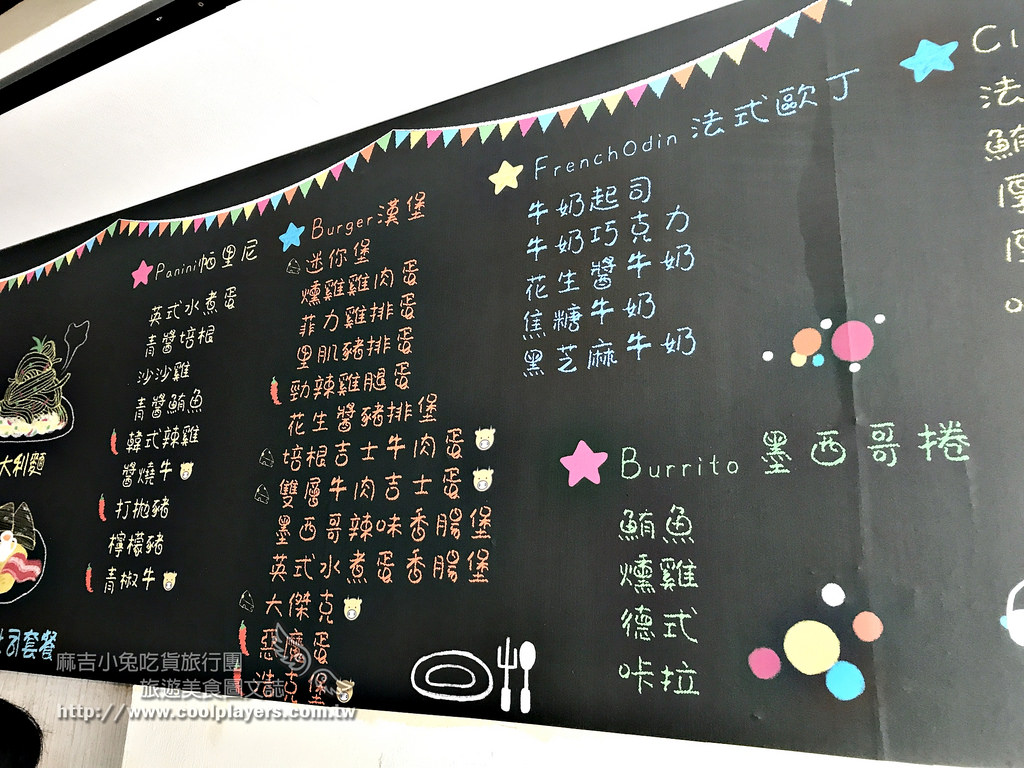 大利麵
司套餐
Panini帕里尼
英式水煮蛋
青醬培根
沙沙雞
青醬鮪魚
韓式辣雞
醬燒牛
打拋豬
檸檬豬
青椒牛
Burger漢堡
迷你堡
燻雞雞肉蛋
菲力雞排蛋
里肌豬排蛋
勁辣雞腿蛋
花生醬豬排堡
培根吉士牛肉蛋
雙層牛肉吉士蛋
墨西哥辣味香腸堡
英式水煮蛋香腸堡
大傑克
惡魔蛋
克堡
FrenchOdin法式歐丁
牛奶起司
牛奶巧克力
花生醬牛奶
焦糖牛奶
黑芝麻牛奶
Burrito墨西哥捲
鮪魚
燻雞
德式
咔拉
法
鮪
厚
厚
麻吉小兔吃貨旅行團
旅遊美食圖文誌
http://www.coolplayers.com.tw